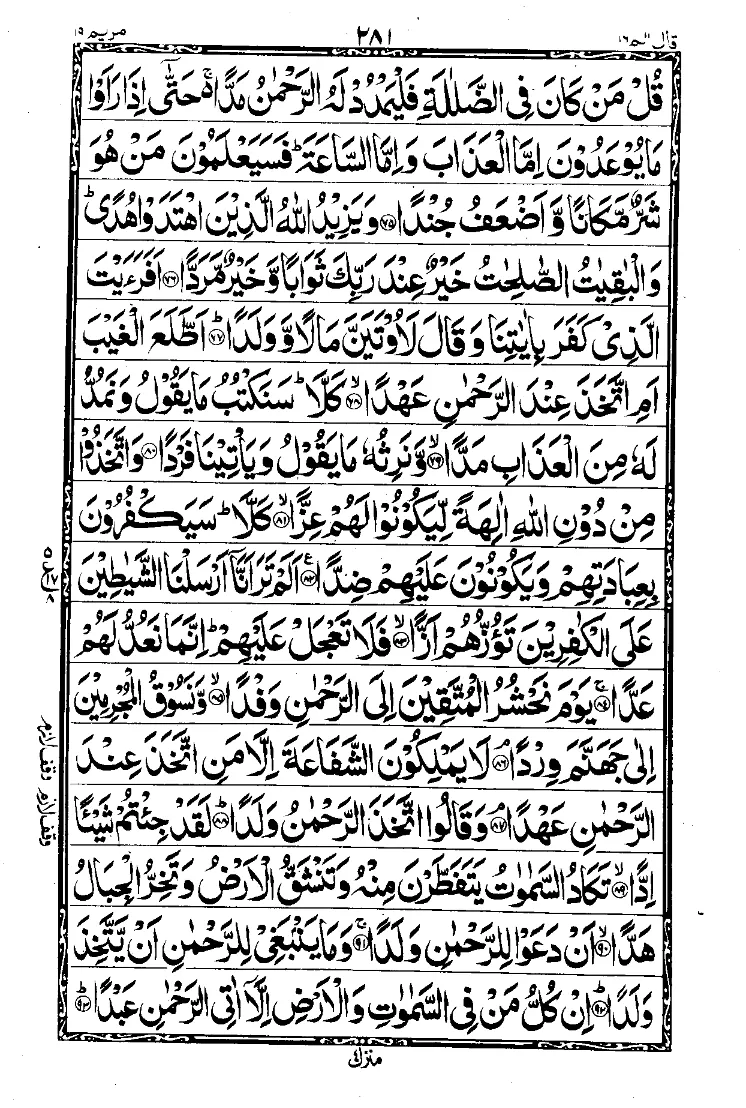 قال الم ١٦ ٢٨١ مريم ١٩
قُلْ مَنْ كَانَ فِى الضَّلٰلَةِ فَلْيَمْدُدْ لَهُ الرَّحْمٰنُ مَدًّا ۚ حَتّٰٓى اِذَا رَاَوْا
مَا يُوْعَدُوْنَ اِمَّا الْعَذَابَ وَاِمَّا السَّاعَةَ ؕ فَسَيَعْلَمُوْنَ مَنْ هُوَ
شَرٌّ مَّكَانًا وَّاَضْعَفُ جُنْدًا ﴿۷۵﴾ وَيَزِيْدُ اللّٰهُ الَّذِيْنَ اهْتَدَوْا هُدًى ؕ
وَالْبٰقِيٰتُ الصّٰلِحٰتُ خَيْرٌ عِنْدَ رَبِّكَ ثَوَابًا وَّخَيْرٌ مَّرَدًّا ﴿۷۶﴾ اَفَرَءَيْتَ
الَّذِىْ كَفَرَ بِاٰيٰتِنَا وَقَالَ لَاُوْتَيَنَّ مَالًا وَّوَلَدًا ؕ ﴿۷۷﴾ اَطَّلَعَ الْغَيْبَ
اَمِ اتَّخَذَ عِنْدَ الرَّحْمٰنِ عَهْدًا ۙ ﴿۷۸﴾ كَلَّا ؕ سَنَكْتُبُ مَا يَقُوْلُ وَنَمُدُّ
لَهٗ مِنَ الْعَذَابِ مَدًّا ۙ ﴿۷۹﴾ وَّنَرِثُهٗ مَا يَقُوْلُ وَيَاْتِيْنَا فَرْدًا ﴿۸۰﴾ وَاتَّخَذُوْا
مِنْ دُوْنِ اللّٰهِ اٰلِهَةً لِّيَكُوْنُوْا لَهُمْ عِزًّا ۙ ﴿۸۱﴾ كَلَّا ؕ سَيَكْفُرُوْنَ
بِعِبَادَتِهِمْ وَيَكُوْنُوْنَ عَلَيْهِمْ ضِدًّا ﴿۸۲﴾ ع اَلَمْ تَرَ اَنَّآ اَرْسَلْنَا الشَّيٰطِيْنَ
عَلَى الْكٰفِرِيْنَ تَؤُزُّهُمْ اَزًّا ۙ ﴿۸۳﴾ فَلَا تَعْجَلْ عَلَيْهِمْ ؕ اِنَّمَا نَعُدُّ لَهُمْ
عَدًّا ۚ ﴿۸۴﴾ يَوْمَ نَحْشُرُ الْمُتَّقِيْنَ اِلَى الرَّحْمٰنِ وَفْدًا ۙ ﴿۸۵﴾ وَّنَسُوْقُ الْمُجْرِمِيْنَ
اِلٰى جَهَنَّمَ وِرْدًا ۘ ﴿۸۶﴾ لَا يَمْلِكُوْنَ الشَّفَاعَةَ اِلَّا مَنِ اتَّخَذَ عِنْدَ
الرَّحْمٰنِ عَهْدًا ۘ ﴿۸۷﴾ وَقَالُوا اتَّخَذَ الرَّحْمٰنُ وَلَدًا ؕ ﴿۸۸﴾ لَقَدْ جِئْتُمْ شَيْئًا
اِدًّا ۙ ﴿۸۹﴾ تَكَادُ السَّمٰوٰتُ يَتَفَطَّرْنَ مِنْهُ وَتَنْشَقُّ الْاَرْضُ وَتَخِرُّ الْجِبَالُ
هَدًّا ۙ ﴿۹۰﴾ اَنْ دَعَوْا لِلرَّحْمٰنِ وَلَدًا ۚ ﴿۹۱﴾ وَمَا يَنْۢبَغِىْ لِلرَّحْمٰنِ اَنْ يَّتَّخِذَ
وَلَدًا ؕ ﴿۹۲﴾ اِنْ كُلُّ مَنْ فِى السَّمٰوٰتِ وَالْاَرْضِ اِلَّآ اٰتِى الرَّحْمٰنِ عَبْدًا ؕ ﴿۹۳﴾
وقف لازم
وقف لازم
منزل ٤